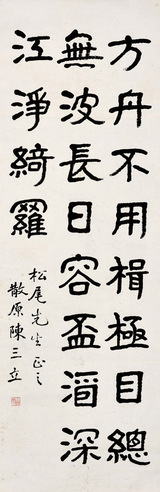 方舟不用楫極目總
無波長日容盃酒深
江淨綺羅
松尾先生正之
散原陳三立